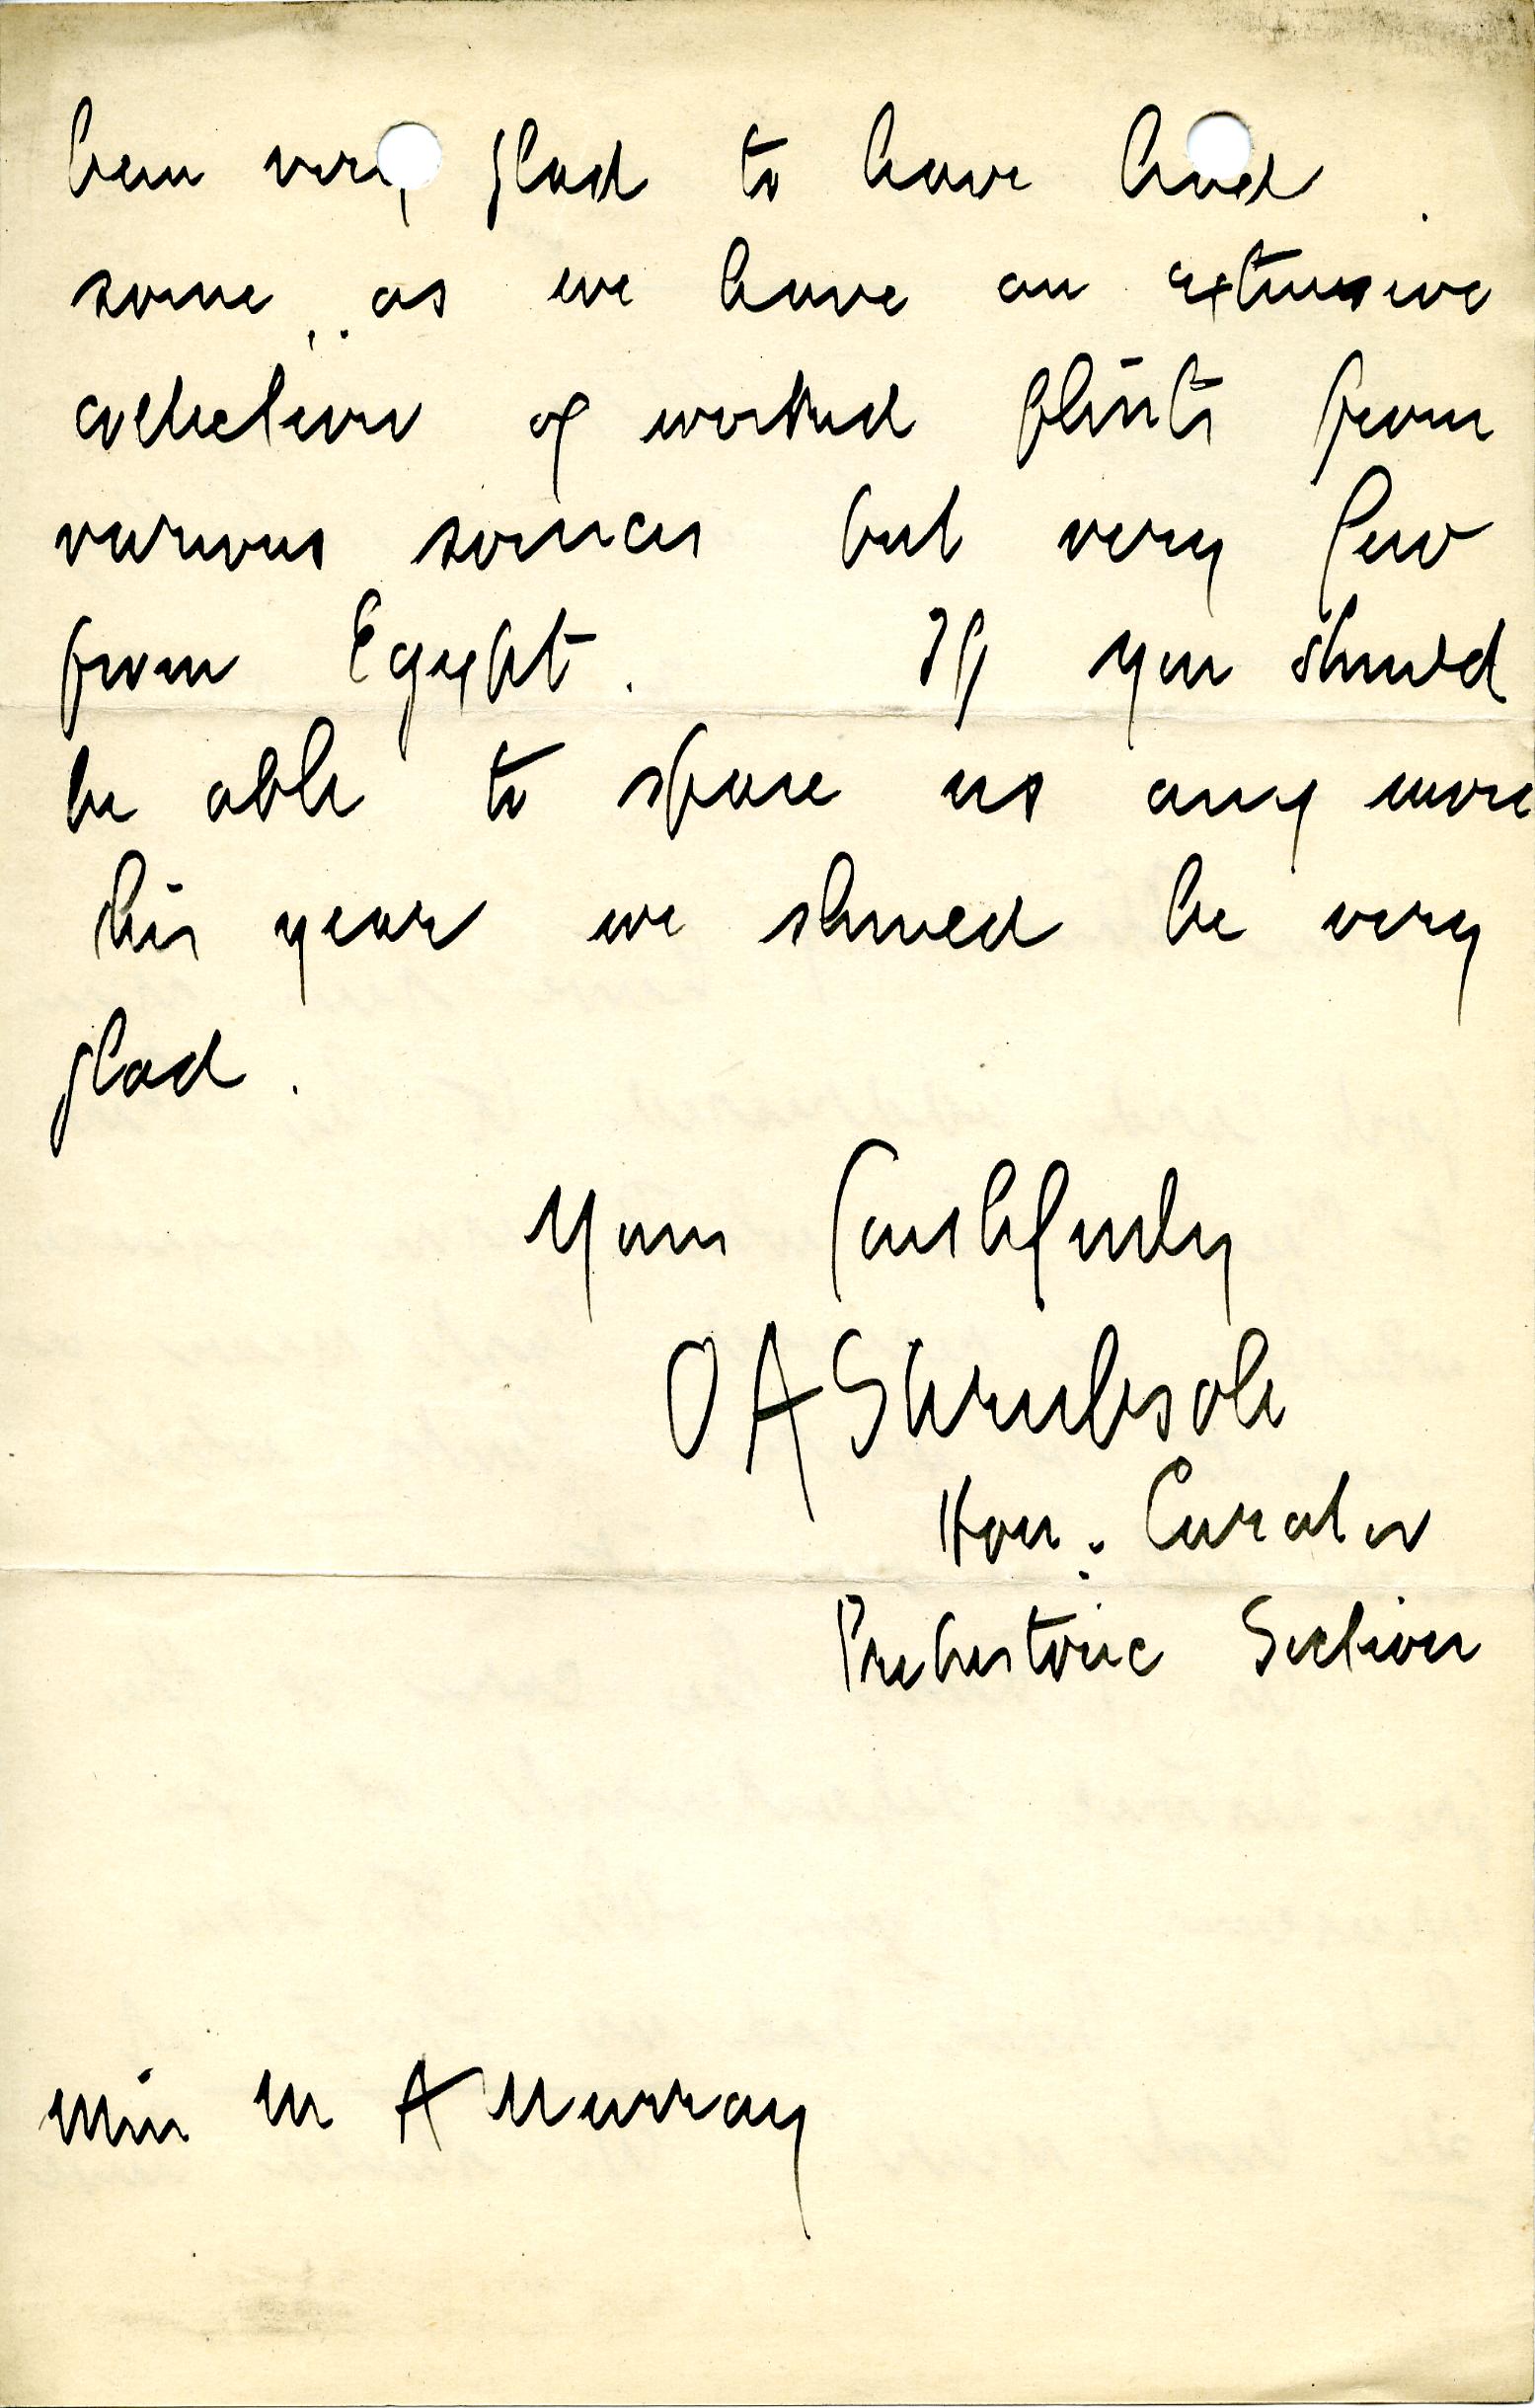 been very glad to have had
some, as we have an extensive
collection of worked flints from
various sources but very few
from Egypt. If you should
be able to spare us any more
this year we should be very
glad.
Yours faithfully
O A Shrubsole
Hon. Curator
Prehistoric Section
Miss M A Murray